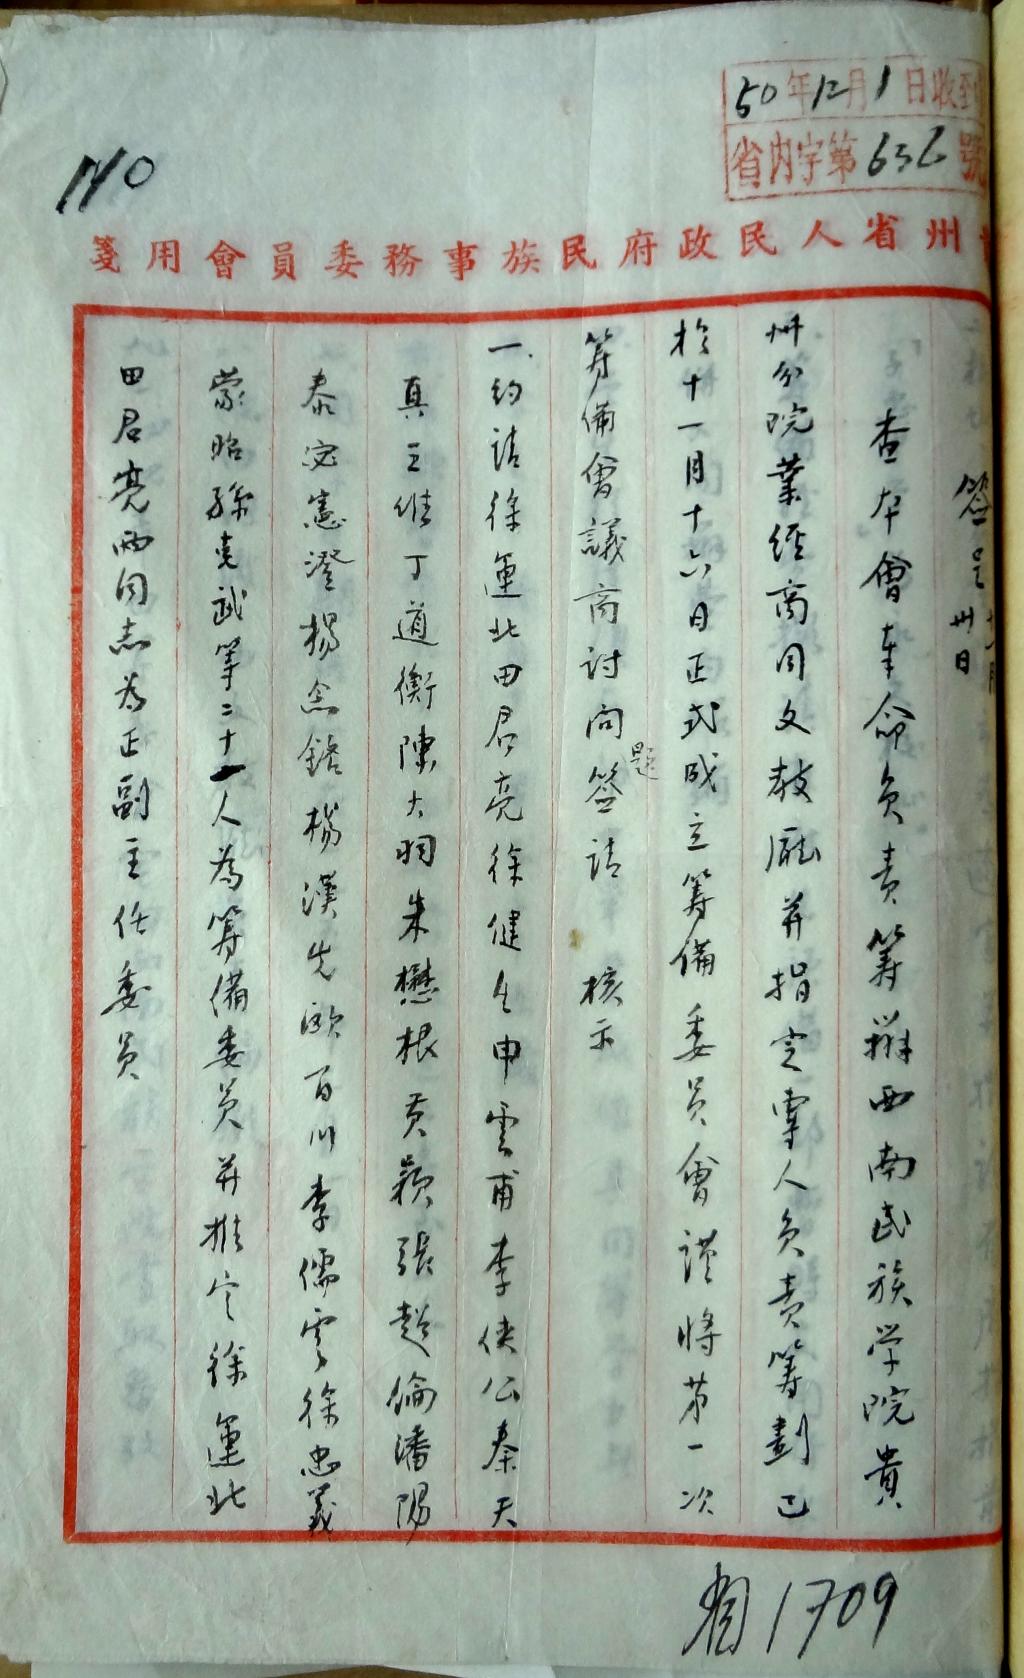 50年12月1日收到
省内字第636號
140
州省人民政府民族事務委員會用箋
簽呈
卅日
查本會奉命負責筹辦西南民族学院貴
州分院業経商同文教廳并指定專人負責筹劃已
於十一月十六日正式成立筹備委員會謹将第一次
筹備會議商討问題簽請 核示
一.约請徐運北田君亮徐健生申雲甫李侠公秦天
真王 丁道衡陳大羽朱懋根黄颖張超倫潘陽
泰 憲澄楊念 楊漢先歐百川李儒云徐忠義
蒙昭孫克武等二十一人為筹備委员并推定徐運北
田君亮两同志為正副主任委员
省1709